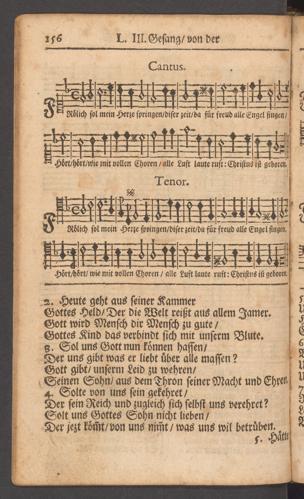 156 L. III. Gesang/ von der
Cantus.
FRölich sol mein Hertze springen/diser zeit/da für freud alle Engel singen/
Hört/hört/wie mit vollen Choren/ alle Luft laute ruft: Christus ist geboren.
Tenor.
FRölich sol mein Hertze springen/diser zeit/da für freud alle Engel singen.
Hört/hört/ wie mit vollen Choren / alle Luft laute ruft: Christus ist geboren.
2. Heute geht aus seiner Kammer
Gottes Held/ Der die Welt reißt aus allem Jamer.
Gott wird Mensch dir Mensch zu gute/
Gottes Kind das verbindt sich mit unserm Blute.
3. Sol uns Gott nun können hassen/
Der uns gibt was er liebt über alle massen?
Gott gibt/ unserm Leid zu wehren/
Seinen Sohn/ aus dem Thron seiner Macht und Ehren.
4. Solte von uns sein gekehret/
Der sein Reich und zugleich sich selbst uns verehret?
Solt uns Gottes Sohn nicht lieben/
Der jezt köm̃t/ von uns nim̃t/ was uns wil betrüben.
5. Hätte